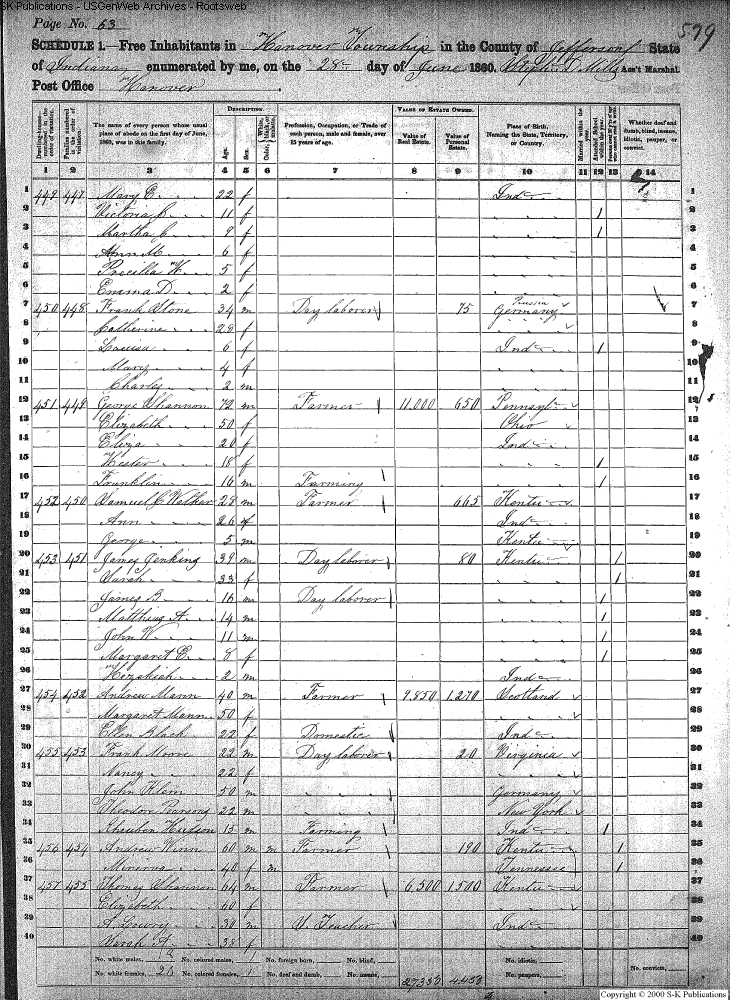 SK-Publications - USGenWeb Archives - Rootsweb
Page No. 63
579
SCHEDULE 1.—Free Inhabitants in Hanover Township in the County of Jefferson State
of Indiana enumerated by me, on the 28 day of June 1860. Steph. D. Mills Ass't Marshal.
Post Office Hanover
Dwelling-houses—numbered in the order of visitation.
Families numbered in the order of visitation.
The name of every person whose usual place of abode on the first day of June, 1860, was in this family.
DESCRIPTION.
Age.
Sex.
Color, White, black, or mulatto.
Profession, Occupation, or Trade of each person, male and female, over 15 years of age.
VALUE OF ESTATE OWNED.
Value of Real Estate.
Value of Personal Estate.
Place of Birth, Naming the State, Territory, or Country.
Married within the year.
Attended School within the year.
Whether deaf and dumb, blind, insane, idiotic, pauper, or convict.
1 2 3 4 5 6 7 8 9 10 11 12 13 14
1 449 447 Mary E. 22 f Ind 1
2 Victoria J. 11 f 1 2
3 Martha J. 9 f 1 3
4 Ann M. 6 f 4
5 Precilla W. 5 f 5
6 Emma D. 2 f 6
7 450 448 Frank Stone 34 m Day laborer 75 Prussia Germany 7
8 Catherine 28 f 8
9 Louisa 6 f Ind 1 9
10 Mary 4 f 10
11 Charley 2 m 11
12 451 449 George Shannon 72 m Farmer 11,000 650 Pennsyl 12
13 Elizabeth 50 f Ohio 13
14 Eliza 20 f Ind 14
15 Hester 18 f 1 15
16 Franklin 16 m Farming 1 16
17 452 450 Samuel J. Walker 28 m Farmer 665 Kentu 17
18 Ann 26 f Ind 18
19 George 5 m Kentu 19
20 453 451 James Jenking 39 m Day laborer 80 Kentu 1 20
21 Sarah 33 f 1 21
22 James B. 16 m Day laborer 1 22
23 Matthias A. 14 m 1 23
24 John W. 11 m 1 24
25 Margaret E. 8 f 1 25
26 Hezekiah 2 m Ind 26
27 454 452 Andrew Mann 40 m Farmer 9,850 1,270 Scotland 27
28 Margaret Mann 50 f 28
29 Ellen Black 22 f Domestic Ind 29
30 455 453 Frank Moore 22 m Day laborer 20 Virginia 30
31 Nancy 22 f 31
32 John Klem 50 m Germany 32
33 Theodore Parsons 22 m New York 33
34 Hutson 15 m Farming Ind 1 34
35 456 454 Andrew Winn 60 m m Farmer 190 Kentu 1 35
36 Minerva 40 f m Tennessee 1 36
37 457 455 Thomas Shannon 64 m Farmer 6,500 1500 Kentu 37
38 Elizabeth 60 f 38
39 A. Lowry 30 m Teacher Ind 39
40 Sarah A. 38 f 40
No. white males, No. colored males, 1 No. foreign born, No. blind, No. idiotic, No. convicts,
No. white females, No. colored females, 1 No. deaf and dumb, No. insane, 27350 4450 No. paupers,
Copyright © 2000 S-K Publications